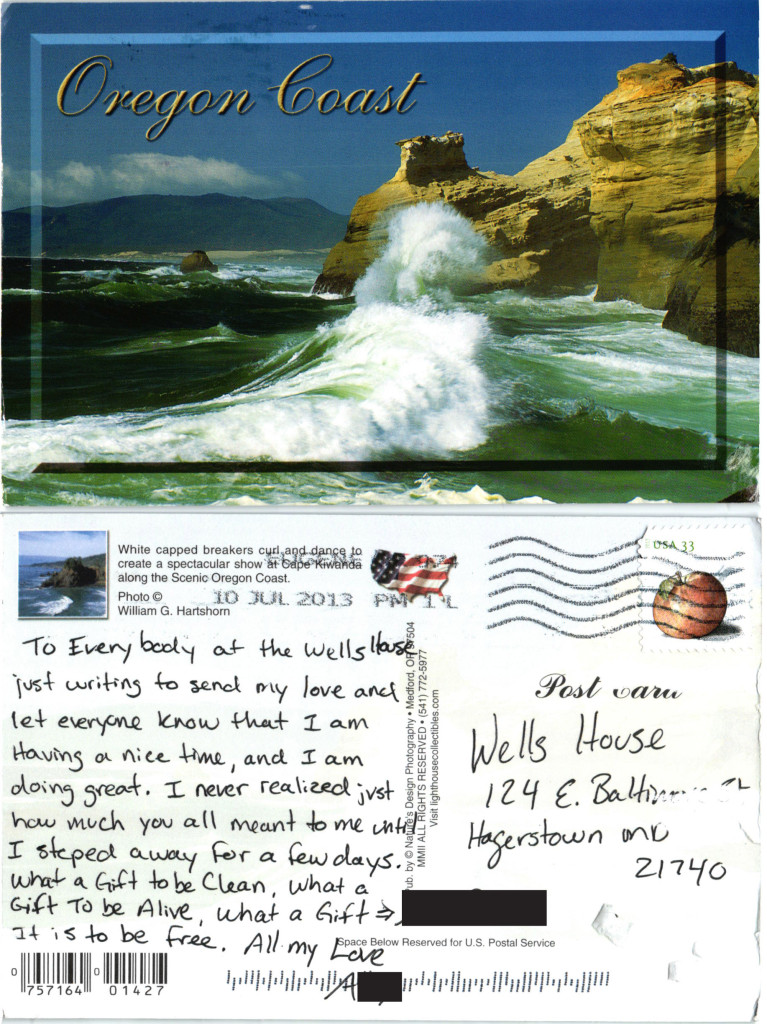 Oregon Coast
White capped breakers curl and dance to
create a spectacular show at Cape Kiwanda
along the Scenic Oregon Coast.
Photo ©
William G. Hartshorn
EUGENE
10 JUL 2013 PM
USA 33
To Everybody at the Wells House
just writing to send my love and
let everyone know that I am
Having a nice time, and I am
doing great. I never realized just
how much you all meant to me until
I steped away for a few days.
What a Gift to be Clean, what a
Gift To be Alive, what a Gift ⇒
It is to be free. All my Love
Pub. by © Nature's Design Photography • Medford, OR 97504
MMII ALL RIGHTS RESERVED • (541) 772-5977
Visit lighthousecollectibles.com
Post Card
Wells House
124 E. Baltimore St
Hagerstown MD
21740
Space Below Reserved for U.S. Postal Service
0 757164 0 01427